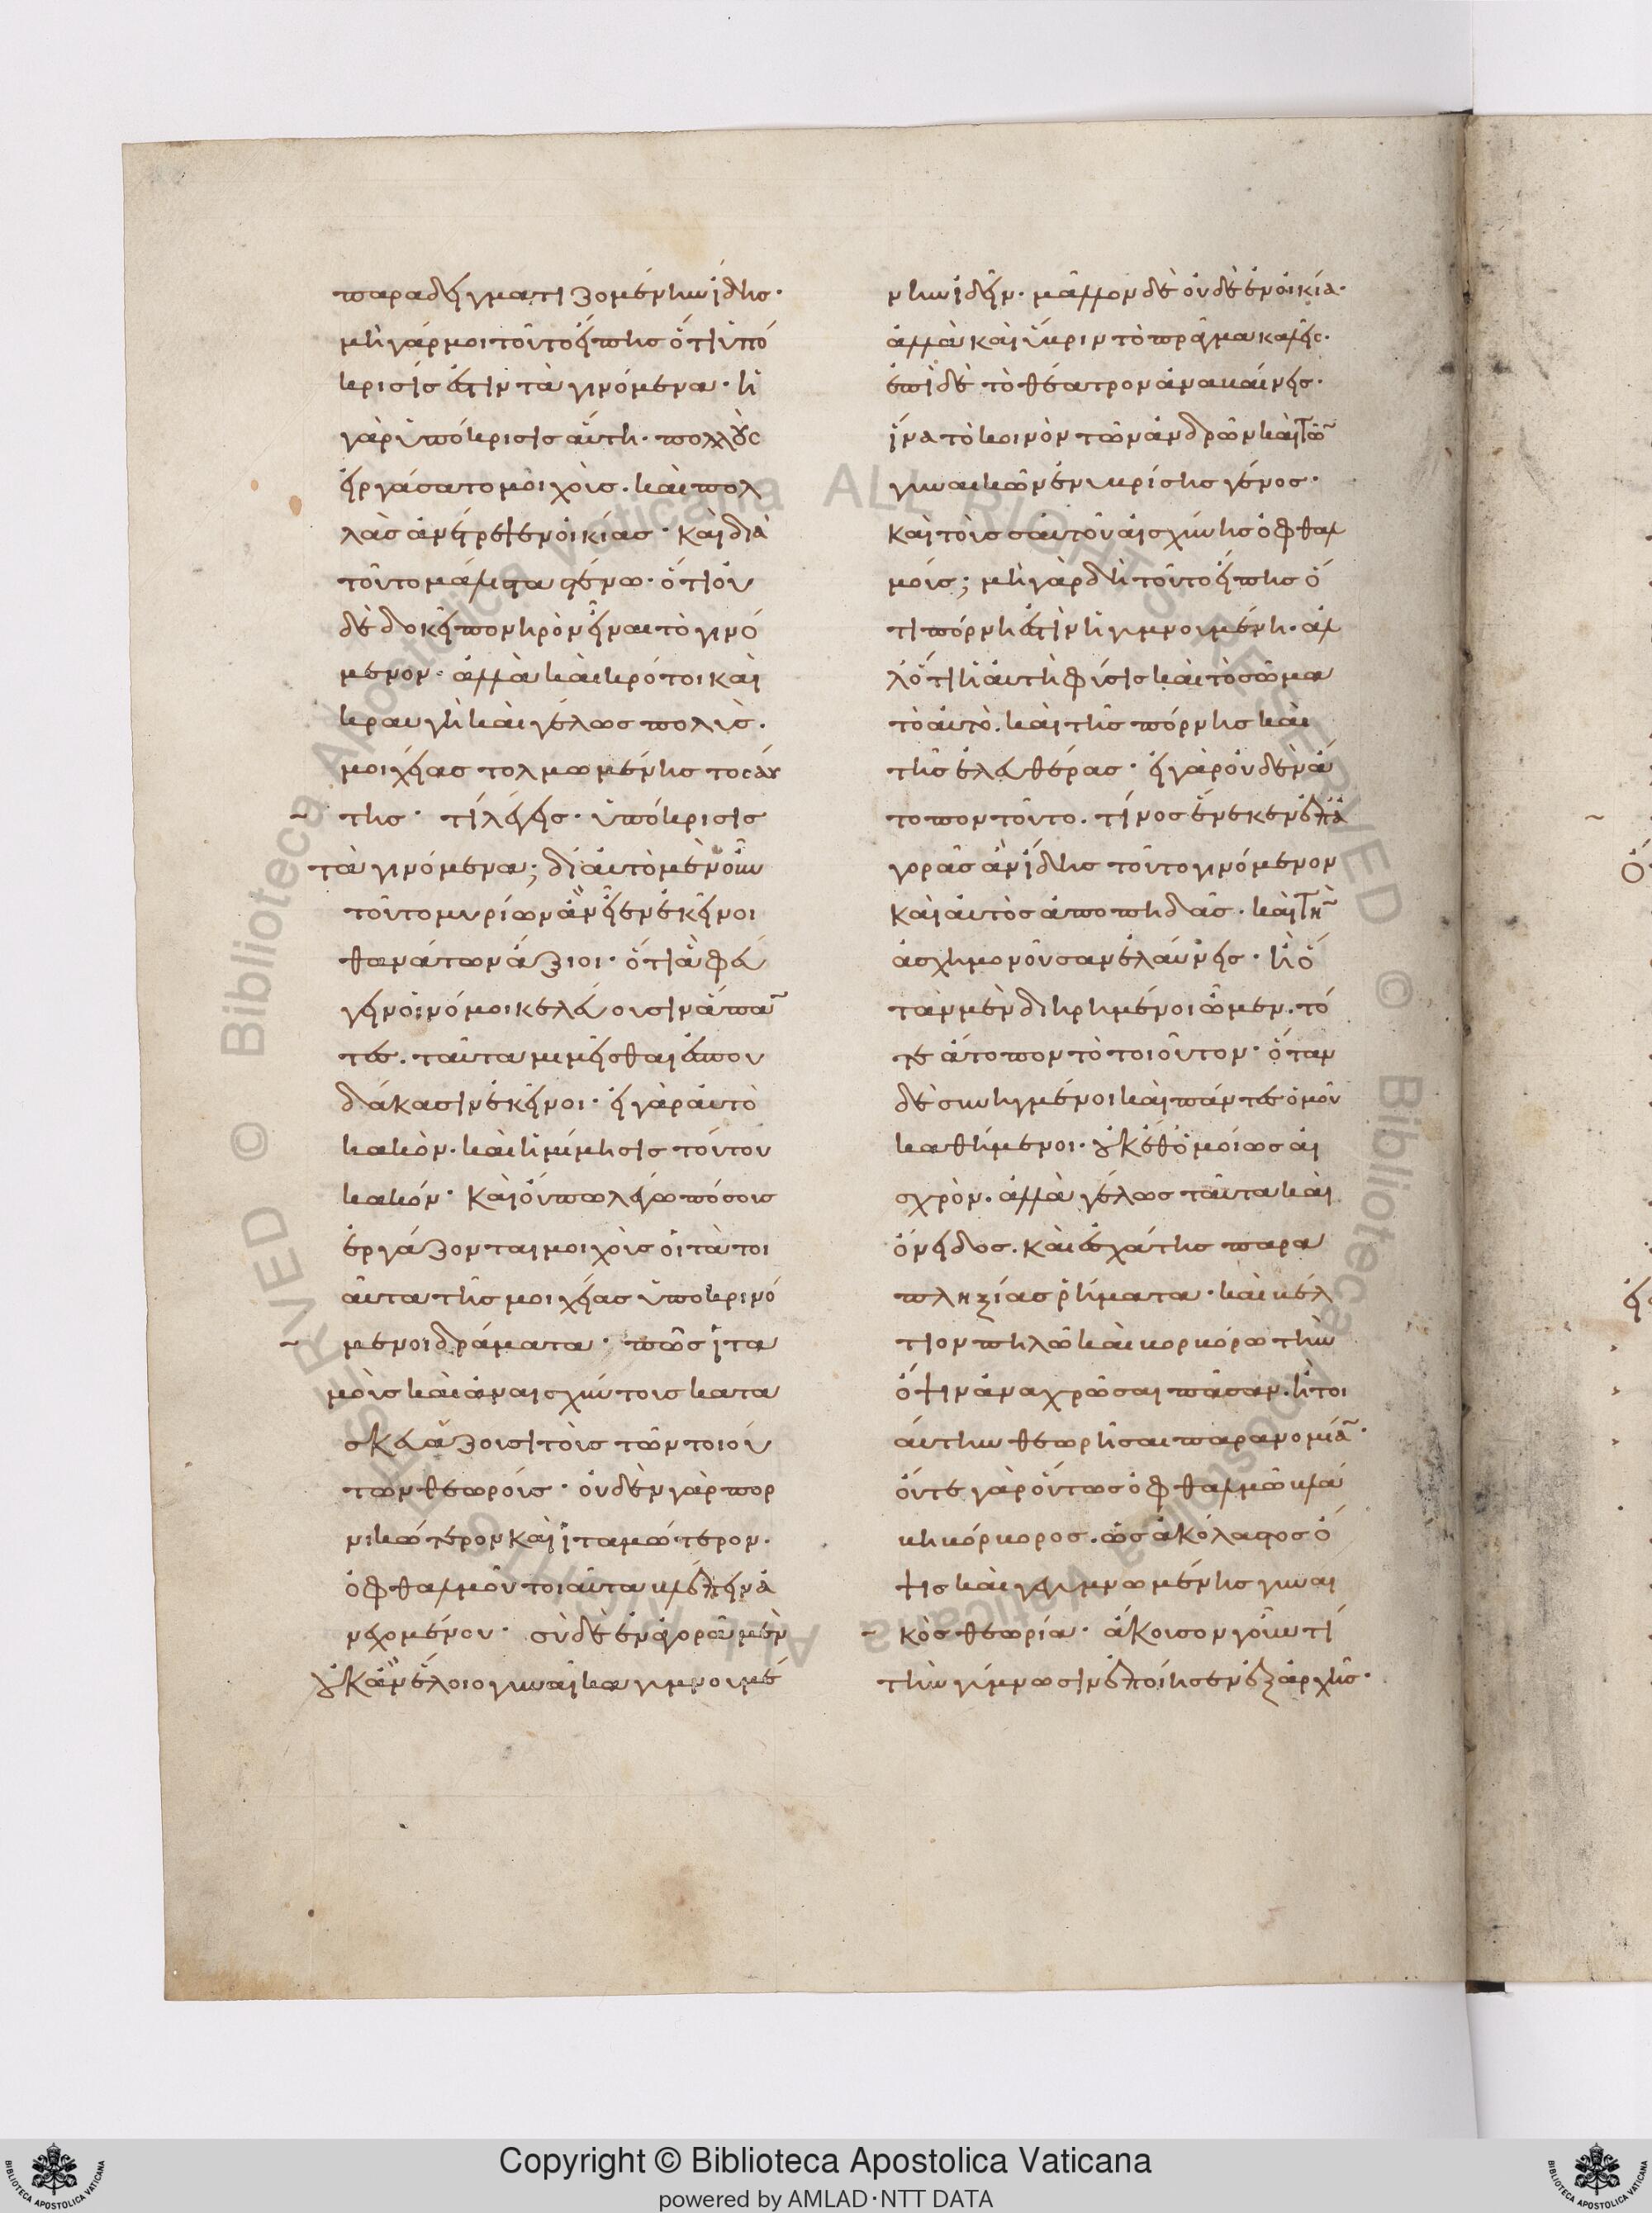 παραδειγματιζομένην ἴδης·
μὴ γάρ μοι τοῦτο εἴπῃς ὅτι ὑπό
κρισίς ἐστιν τὰ γινόμενα· ἡ
γὰρ ὑπόκρισις αὕτη· πολλοὺς
εἰργάσατο μοιχοὺς. καὶ πολ
λὰς ἀνέτρεψεν οἰκίας· καὶ διὰ
τοῦτο μάλιστα στένω· ὅτι οὐ
δὲ δοκεῖ πονηρὸν εἶναι τὸ γινό
μενον· ἀλλὰ καὶ κρότοι καὶ
κραυγὴ καὶ γέλως πολὺς.
μοιχείας τολμωμένης τοσαύ
της· τί λέγεις· ὑπόκρισις
τὰ γινόμενα; δι' αὐτὸ μὲν οὖν
τοῦτο μυρίων ἂν εἶεν ἐκεῖνοι
θανάτων ἄξιοι· ὅτι ἃ φεύ
γειν οἱ νόμοι κελεύουσιν ἅπαν
τες. ταῦτα μιμεῖσθαι ἐσπου
δάκασιν ἐκεῖνοι· εἰ γὰρ αὐτὸ
κακὸν. καὶ ἡ μίμησις τούτου
κακόν· καὶ οὔπω λέγω πόσους
ἐργάζονται μοιχοὺς οἱ τὰ τοι
αῦτα τῆς μοιχείας ὑποκρινό
μενοι δράματα· πῶς ἰτα
μοὺς καὶ ἀναισχύντους κατα
σκευάζουσι τοὺς τῶν τοιού
των θεωρούς· οὐδὲν γὰρ πορ
νικώτερον καὶ ἰταμώτερον.
ὀφθαλμοῦ τοιαῦτα βλέπειν ἀ
νεχομένου· σὺ δὲ ἐν ἀγορᾷ μὲν
οὐκ ἂν ἕλοιο γυναῖκα γυμνουμέ
νην ἰδεῖν· μᾶλλον δὲ οὐδὲ ἐν οἰκίᾳ·
ἀλλὰ καὶ ὕβριν τὸ πρᾶγμα καλεῖς·
ἐπὶ δὲ τὸ θέατρον ἀναβαίνεις·
ἵνα τὸ κοινὸν τῶν ἀνδρῶν καὶ τῶν
γυναικῶν ἐνυβρίσῃς γένος·
καὶ τοὺς σαυτοῦ αἰσχύνῃς ὀφθαλ
μούς; μὴ γὰρ δὴ τοῦτο εἴπῃς ὅ
τι πόρνη ἐστὶν ἡ γυμνουμένη· ἀλ
λ' ὅτι ἡ αὐτὴ φύσις καὶ τὸ σῶμα
τὸ αὐτὸ. καὶ τῆς πόρνης καὶ
τῆς ἐλευθέρας· εἰ γὰρ οὐδὲν ἄ
τοπον τοῦτο. τίνος ἕνεκεν ἐπ' ἀ
γορᾶς ἂν ἴδῃς τοῦτο γινόμενον
καὶ αὐτὸς ἀποπηδᾷς· καὶ τὴν
ἀσχημονοῦσαν ἐλαύνεις· ἢ ὅ
ταν μὲν διῃρημένοι ὦμεν. τό
τε ἄτοπον τὸ τοιοῦτον· ὅταν
δὲ συνηγμένοι καὶ πάντες ὁμοῦ
καθήμενοι· οὐκέθ' ὁμοίως αἰ
σχρὸν. ἀλλὰ γέλως ταῦτα καὶ
ὄνειδος. καὶ ἐσχάτης παρα
πληξίας ῥήματα· καὶ βέλ
τιον πηλῷ καὶ βορβόρῳ τὴν
ὄψιν ἀναχρῶσαι πᾶσαν. ἢ τοι
αύτην θεωρῆσαι παρανομίαν·
οὔτε γὰρ οὕτως ὀφθαλμῷ βλά
βη βόρβορος. ὡς ἀκόλαστος ὄ
ψις καὶ γεγυμνωμένης γυναι
κὸς θεωρία· ἄκουσον γοῦν τί
τὴν γύμνωσιν ἐποίησεν ἐξ ἀρχῆς·